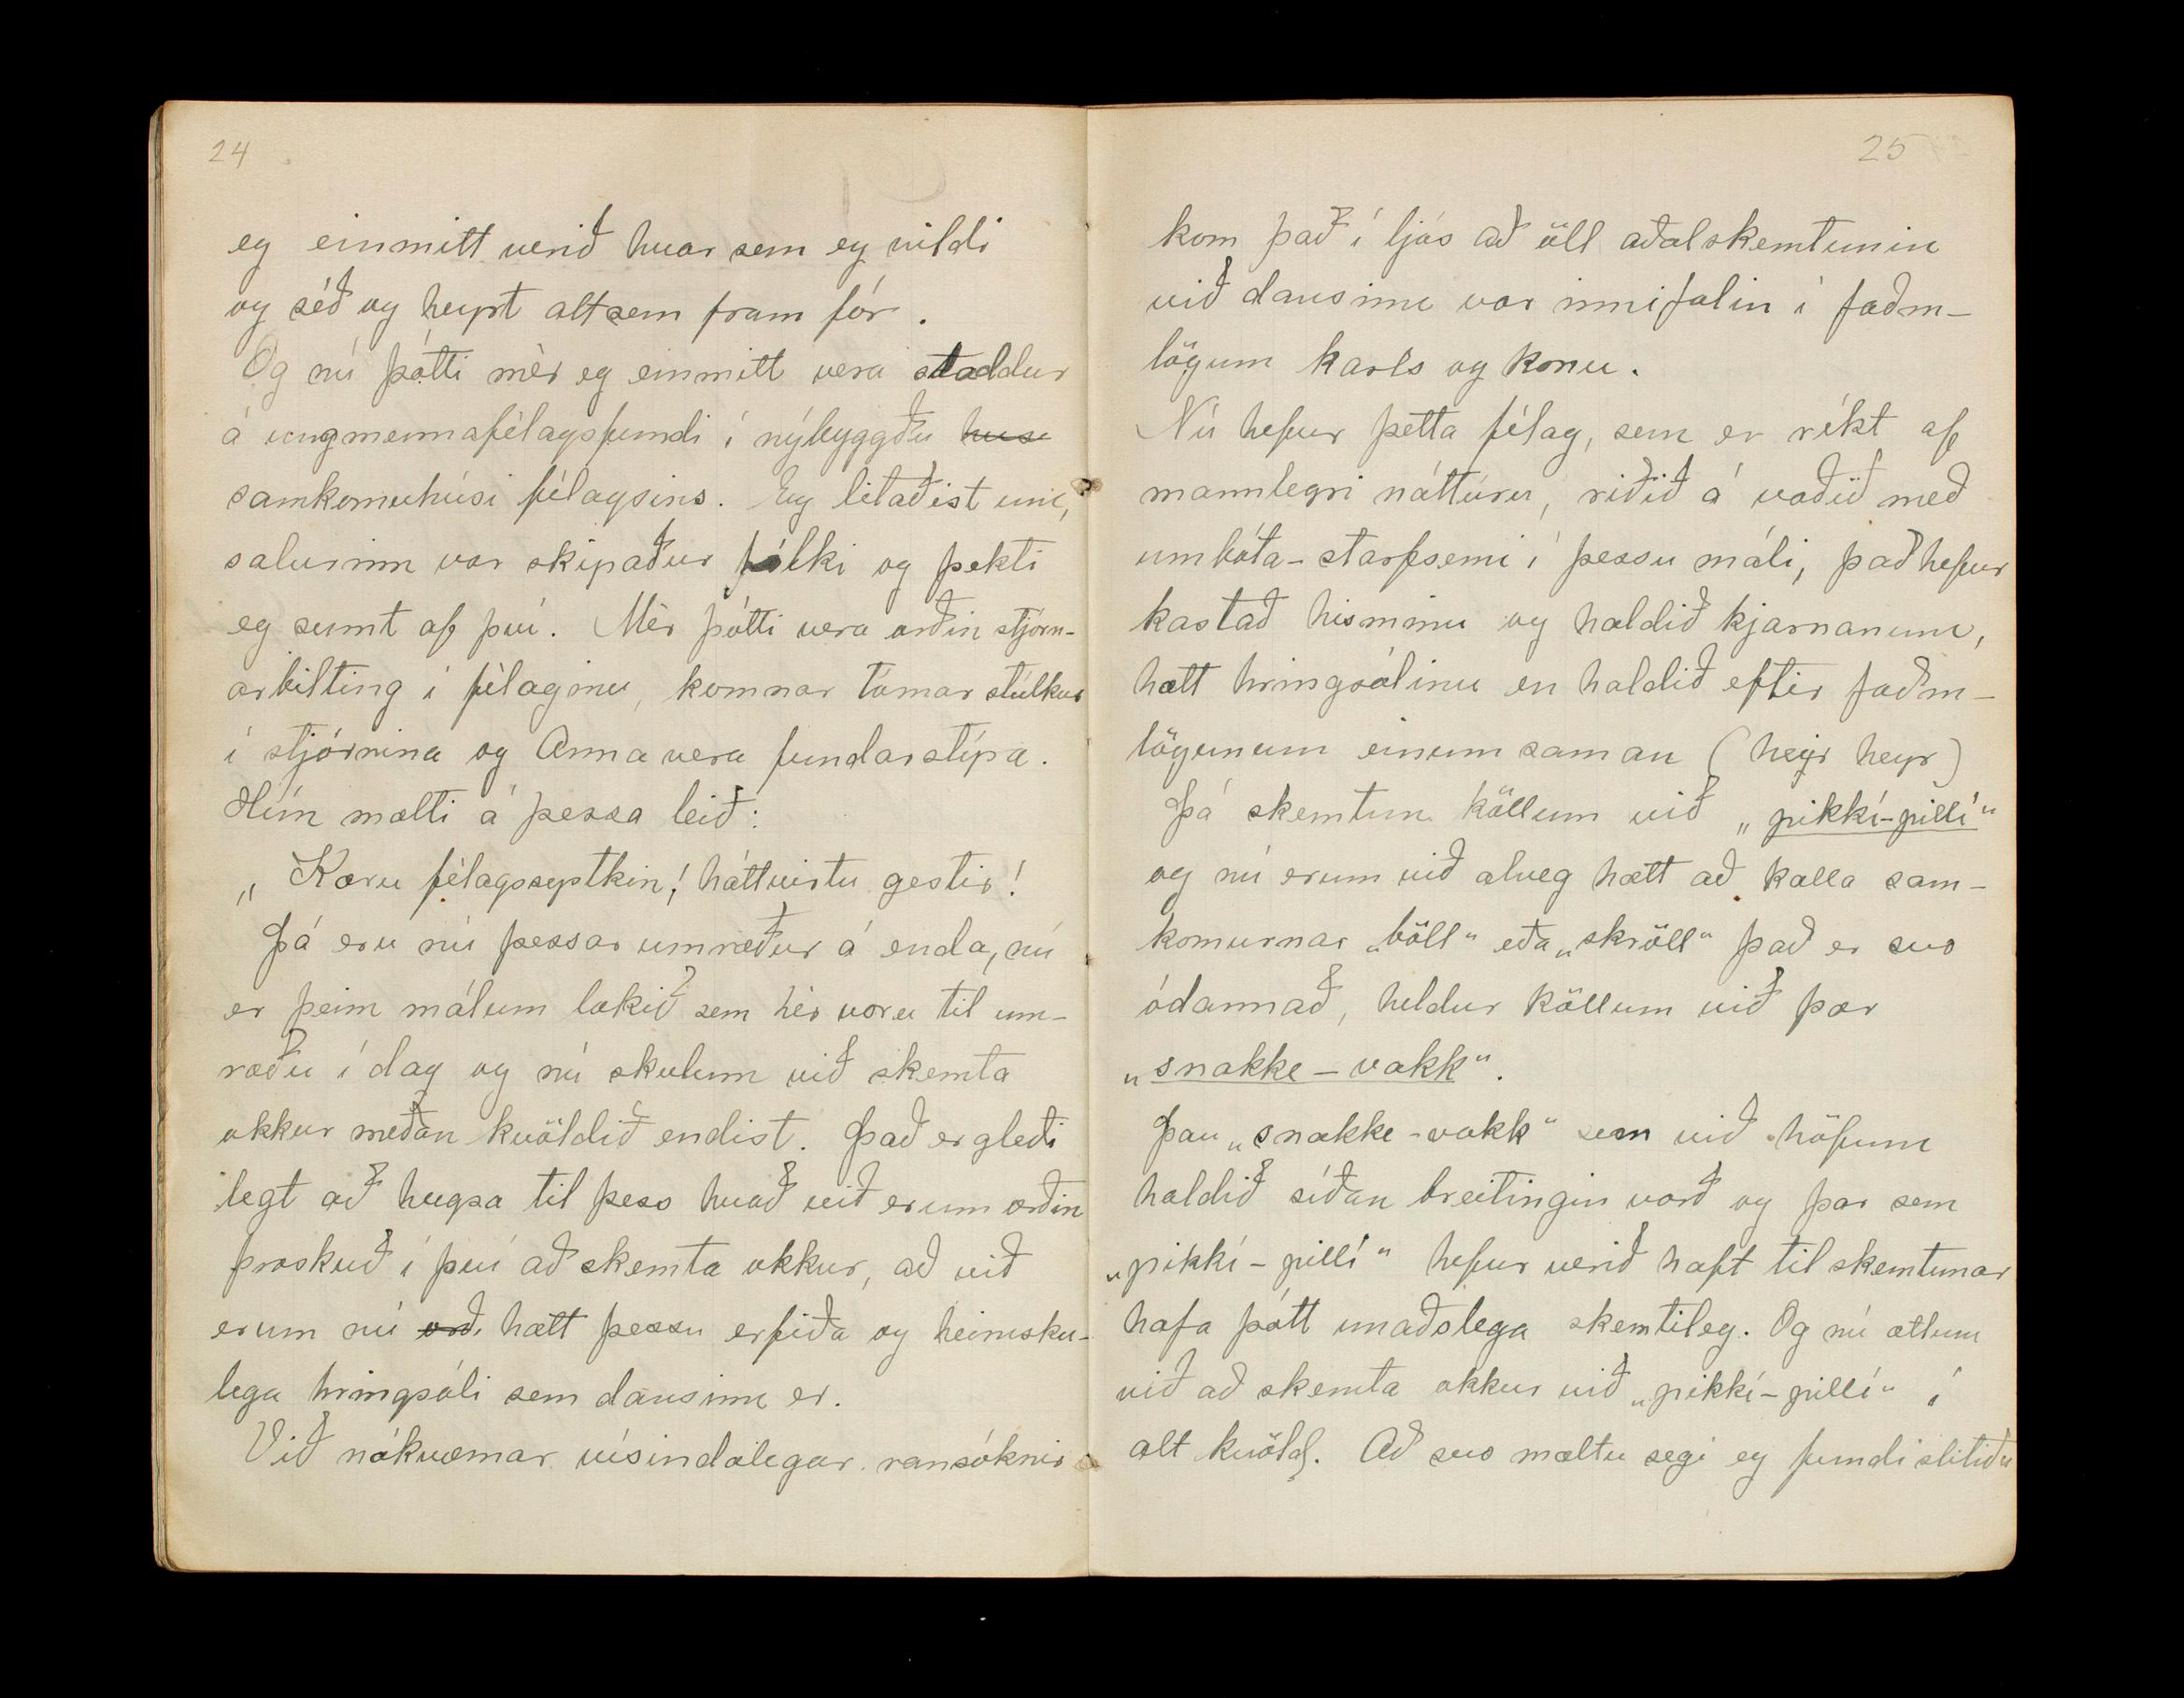 24
eg einmitt verið hvar sem eg vildi
og séð og heyrt alt sem fram fór.
Og nú þótti mèr eg einmitt vera staddur
á ungmennafèlagsfundi í nýbyggðu húsi
samkomuhúsi fèlagsins. Eg litaðist um,
salurinn var skipaður fólki og þekti
eg sumt af því. Mèr þótti vera orðin stjórn-
arbilting í fèlaginu, komnar tómar stúlkur
í stjórnina og Anna vera fundarstýra.
Hún mælti á þessa leið:
„Kæru fèlagssystkin! háttvirtu gestir!
Þá eru nú þessar umræður á enda, nú
er þeim málum lokið sem hèr voru til um-
ræðu í dag og nú skulum við skemta
okkur meðan kvöldið endist. Það er gleði
legt að hugsa til þess hvað við erum orðin
þroskuð í því að skemta okkur, að við
erum nú orð. hætt þessu erfiða og heimsku-
lega hringsóli sem dansinn er.
Við nákvæmar vísindalegar ransóknir
25
kom það í ljós að öll aðalskemtunin
við dansinn var innifalin í faðm-
lögum karls og konu.
Nú hefur þetta fèlag, sem er ríkt af
mannlegri náttúru, riðið á vaðið með
umbóta-starfsemi í þessu máli, það hefur
kastað hisminu og haldið kjarnanum,
hætt hringsólinu en haldið eftir faðm-
lögunum einum saman (heyr heyr)
Þá skemtun köllum við „pikkí-pillí“
og nú erum við alveg hætt að kalla sam-
komurnar „böll“ eða „skröll“ það er svo
ódannað, heldur köllum við þær
„snakke-vakk“.
Þau „snakke-vakk“ sem við höfum
haldið síðan breitingin varð og þar sem
„pikkí-pillí“ hefur verið haft til skemtunar
hafa þótt unaðslega skemtileg. Og nú ætlum
við að skemta okkur við „pikkí-pillí“ í
alt kvöld. Að svo mæltu segi eg fundi slitið“